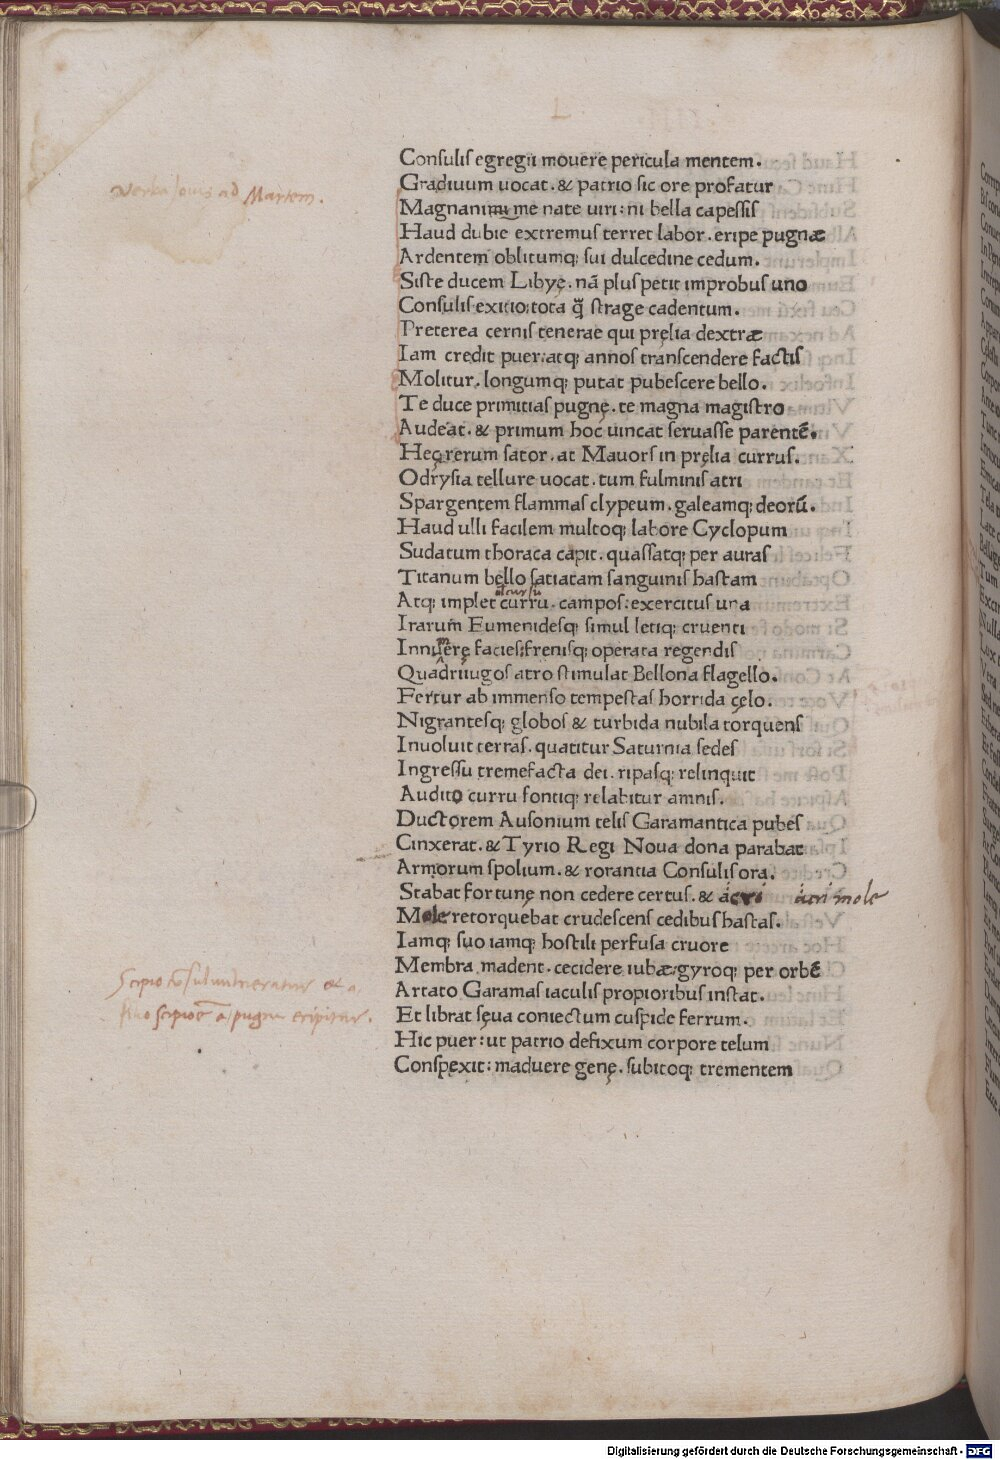 Conſuliſ egregii mouere pericula mentem.
uerba Iouis ad Martem.
Gradiuum uocat. & patrio sic ore profatur
Magnanimi me nate uiri: ni bella capeſſiſ
Haud dubie extremuſ terret labor. eripe pugnæ
Ardentem oblitumq; sui dulcedine cedum.
Siſte ducem Libyę. nã pluſ petit improbuſ uno
Conſuliſ exitio: tota q̃ ſtrage cadentum.
Preterea cerniſ tenerae qui pręlia dextræ
Iam credit puer: atq; annoſ tranſcendere factiſ
Molitur. longumq; putat pubeſcere bello.
Te duce primitiaſ pugnę. te magna magiſtro
Audeat. & primum hoc uincat ſeruaſſe parentẽ.
Hęc rerum ſator. at Mauorſ in pręlia curruſ.
Odryſia tellure uocat. tum fulminiſ atri
Spargentem flammaſ clypeum. galeamq; deorũ.
Haud ulli facilem multoq; labore Cyclopum
Sudatum thoraca capit. quaſſatq; per auraſ
Titanum bello ſatiatam ſanguiniſ haſtam
Atq; implet curru. campoſ: exercituſ una
Irarum Eumenideſq; simul letiq; cruenti
Innũerę facieſ: freniſq; operata regendiſ
Quadriiugoſ atro ſtimulat Bellona flagello.
Fertur ab immenſo tempeſtaſ horrida cęlo.
Nigranteſq; globoſ & turbida nubila torquenſ
Inuoluit terraſ. quatitur Saturnia ſedeſ
Ingreſſu tremefacta dei. ripaſq; relinquit
Audito curru fontiq; relabitur amniſ.
Ductorem Auſonium teliſ Garamantica pubeſ
Cinxerat. & Tyrio Regi Noua dona parabat
Armorum ſpolium. & rorantia Conſuliſ ora.
Stabat fortunę non cedere certuſ. & acri acri mole
Mole retorquebat crudeſcenſ cedibuſ haſtaſ.
Iamq; suo iamq; hoſtili perfuſa cruore
Membra madent. cecidere iubæ: gyroq; per orbẽ
Scipio cõſul uulneratur et a
Artato Garamaſ iaculiſ propioribuſ inſtat.
filio scipiõe a pugna eripitur.
Et librat sęua coniectum cuſpide ferrum.
Hic puer: ut patrio defixum corpore telum
Conſpexit: maduere genę. ſubitoq; trementem
Digitalisierung gefördert durch die Deutsche Forschungsgemeinschaft - DFG